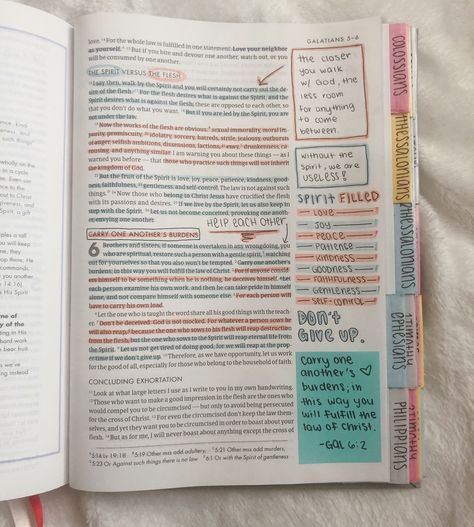 GALATIANS 5–6
love. ¹⁴ For the whole law is fulfilled in one statement: Love your neighbor
as yourself. ¹⁵ But if you bite and devour one another, watch out, or you
will be consumed by one another.
THE SPIRIT VERSUS THE FLESH
¹⁶ I say then, walk by the Spirit and you will certainly not carry out the de-
sire of the flesh. ¹⁷ For the flesh desires what is against the Spirit, and the
Spirit desires what is against the flesh; these are opposed to each other, so
that you don't do what you want. ¹⁸ But if you are led by the Spirit, you are
not under the law.
¹⁹ Now the works of the flesh are obvious: sexual immorality, moral im-
purity, promiscuity, ²⁰ idolatry, sorcery, hatreds, strife, jealousy, outbursts
of anger, selfish ambitions, dissensions, factions, ²¹ envy, drunkenness, ca-
rousing, and anything similar. I am warning you about these things — as I
warned you before — that those who practice such things will not inherit
the kingdom of God.
²² But the fruit of the Spirit is love, joy, peace, patience, kindness, good-
ness, faithfulness, ²³ gentleness, and self-control. The law is not against such
things. ²⁴ Now those who belong to Christ Jesus have crucified the flesh
with its passions and desires. ²⁵ If we live by the Spirit, let us also keep in
step with the Spirit. ²⁶ Let us not become conceited, provoking one anoth-
er, envying one another.
HELP EACH OTHER
CARRY ONE ANOTHER'S BURDENS
6 Brothers and sisters, if someone is overtaken in any wrongdoing, you
who are spiritual, restore such a person with a gentle spirit, watching
out for yourselves so that you also won't be tempted. ² Carry one another's
burdens; in this way you will fulfill the law of Christ. ³ For if anyone consid-
ers himself to be something when he is nothing, he deceives himself. ⁴ Let
each person examine his own work, and then he can take pride in himself
alone, and not compare himself with someone else. ⁵ For each person will
have to carry his own load.
⁶ Let the one who is taught the word share all his good things with the teach-
er. ⁷ Don't be deceived: God is not mocked. For whatever a person sows he
will also reap, ⁸ because the one who sows to his flesh will reap destruction
from the flesh, but the one who sows to the Spirit will reap eternal life from
the Spirit. ⁹ Let us not get tired of doing good, for we will reap at the prop-
er time if we don't give up. ¹⁰ Therefore, as we have opportunity, let us work
for the good of all, especially for those who belong to the household of faith.
CONCLUDING EXHORTATION
¹¹ Look at what large letters I use as I write to you in my own handwriting.
¹² Those who want to make a good impression in the flesh are the ones who
would compel you to be circumcised — but only to avoid being persecuted
for the cross of Christ. ¹³ For even the circumcised don't keep the law them-
selves, and yet they want you to be circumcised in order to boast about your
flesh. ¹⁴ But as for me, I will never boast about anything except the cross of
5:14 Lv 19:18 5:19 Other mss add adultery, 5:21 Other mss add murders,
5:23 Or Against such things there is no law 6:1 Or with the Spirit of gentleness
the closer
you walk
w/ God, the
less room
for anything
to come
between.
without the
Spirit, we are
USELESS!
SPIRIT FILLED
LOVE
JOY
PEACE
PATIENCE
KINDNESS
GOODNESS
FAITHFULNESS
GENTLENESS
SELF-CONTROL
DON'T
GIVE UP.
Carry one
another's
burdens; in
this way you
will fulfill the
law of Christ.
-GAL 6:2
COLOSSIANS
1 THESSALONIANS
2 THESSALONIANS
1 TIMOTHY
EPHESIANS
2 TIMOTHY
PHILIPPIANS